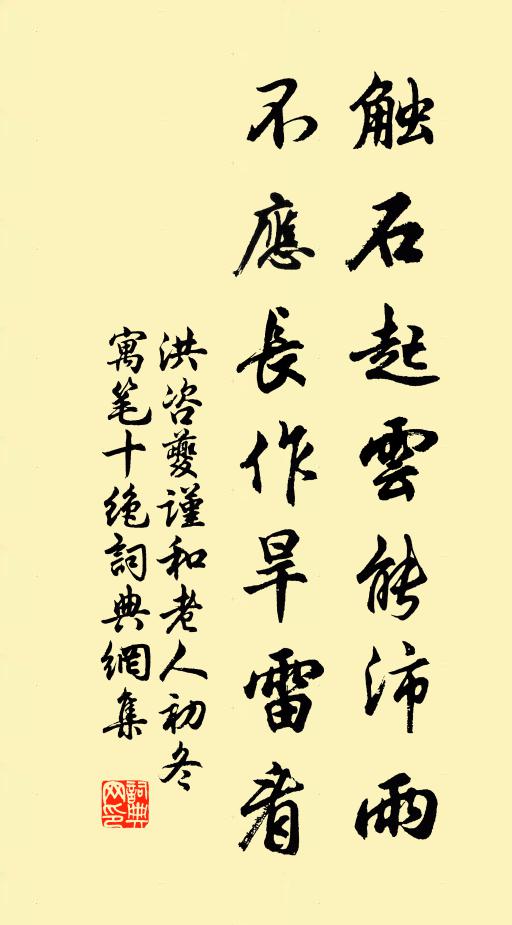 触石起雲能沛雨
不應長作旱雷看
洪咨夔謹和老人初冬
寓笔十绝詞典網集
詞典網印